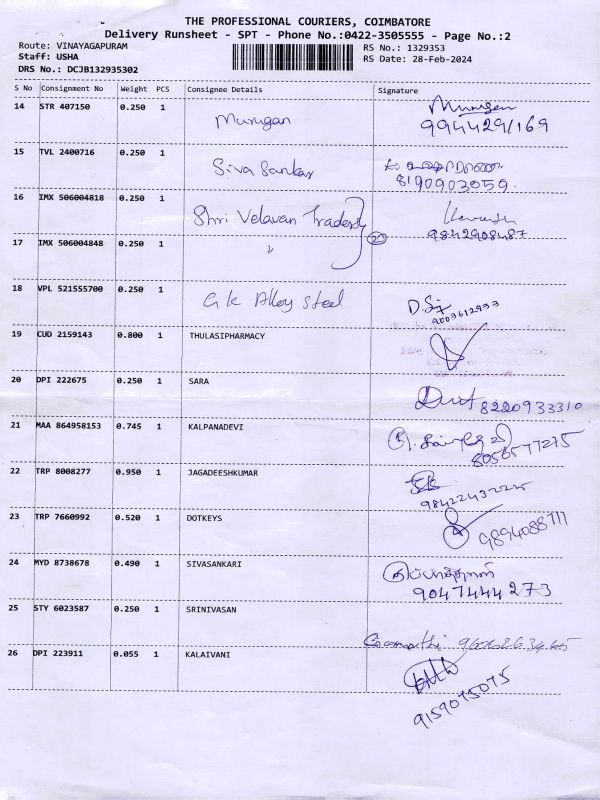 THE PROFESSIONAL COURIERS, COIMBATORE
Delivery Runsheet - SPT - Phone No.:0422-3505555 - Page No.:2
Route: VINAYAGAPURAM
RS No.: 1329353
Staff: USHA
RS Date: 28-Feb-2024
DRS No.: DCJB132935302
S No Consignment No Weight PCS Consignee Details Signature
14 STR 407150 0.250 1 Murugan Murugan
994429/169
15 TVL 2400716 0.250 1 Siva Sankar
8190903059
16 IMX 506004818 0.250 1 Shri Velavan Traders
9842908487
17 IMX 506004848 0.250 1 "
18 VPL 521555700 0.250 1 G k Alloy Steel
9003612933
19 CUD 2159143 0.800 1 THULASIPHARMACY
20 DPI 222675 0.250 1 SARA
8220933310
21 MAA 864958153 0.745 1 KALPANADEVI
8056577275
22 TRP 8008277 0.950 1 JAGADEESHKUMAR
23 TRP 7660992 0.520 1 DOTKEYS
9894088711
24 MYD 8738678 0.490 1 SIVASANKARI
9047444273
25 STY 6023587 0.250 1 SRINIVASAN
Gomathi
26 DPI 223911 0.055 1 KALAIVANI
9159075075